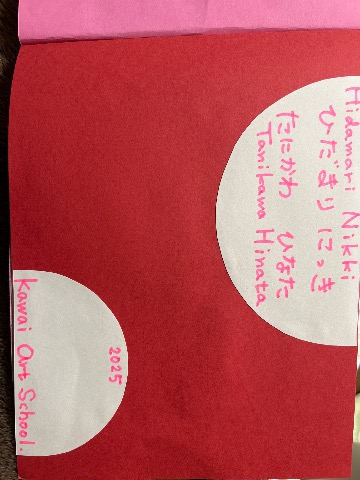 Hidamari Nikki
ひだまりにっき
たにかわ ひなた
Tanikawa Hinata
2025
Kawai Art School.